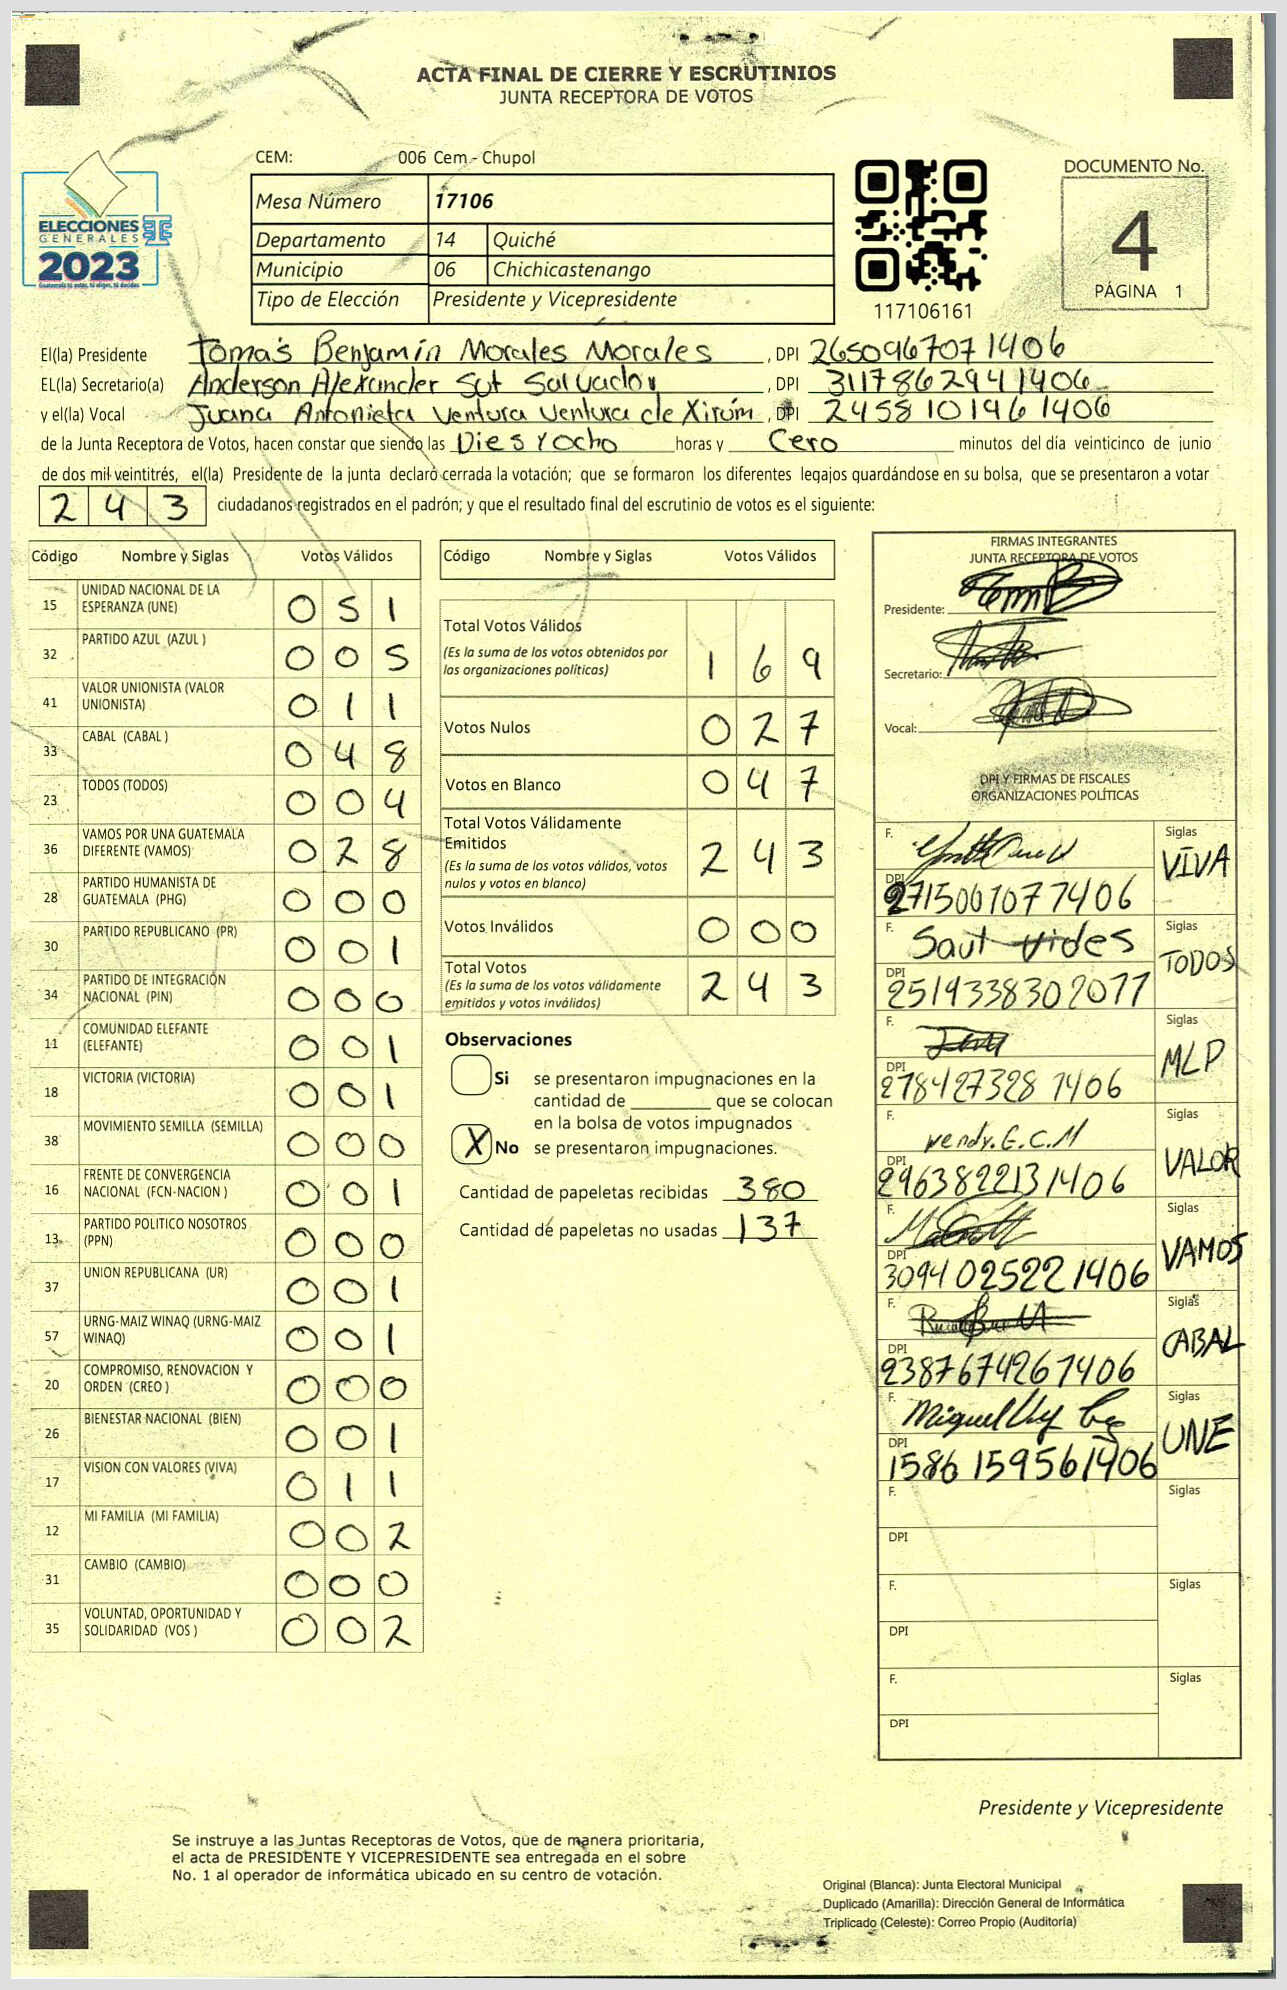 ACTA FINAL DE CIERRE Y ESCRUTINIOS
JUNTA RECEPTORA DE VOTOS
CEM: 006 Cem - Chupol
DOCUMENTO No.
4
PÁGINA 1
ELECCIONES
GENERALES
2023
Mesa Número 17106
Departamento 14 Quiché
Municipio 06 Chichicastenango
Tipo de Elección Presidente y Vicepresidente
117106161
El(la) Presidente Tomás Benjamín Morales Morales, DPI 2650967071406
EL(la) Secretario(a) Anderson Alexander Sut Salvador, DPI 3117862941406
y el(la) Vocal Juana Antonieta Ventura Ventura de Xirúm, DPI 2458101961406
de la Junta Receptora de Votos, hacen constar que siendo las Dies y ocho horas y Cero minutos del día veinticinco de junio
de dos mil veintitrés, el(la) Presidente de la junta declaró cerrada la votación; que se formaron los diferentes legajos quardándose en su bolsa, que se presentaron a votar
243 ciudadanos registrados en el padrón; y que el resultado final del escrutinio de votos es el siguiente:
Código Nombre y Siglas Votos Válidos
15 UNIDAD NACIONAL DE LA ESPERANZA (UNE) 051
32 PARTIDO AZUL (AZUL ) 005
41 VALOR UNIONISTA (VALOR UNIONISTA) 011
33 CABAL (CABAL ) 048
23 TODOS (TODOS) 004
36 VAMOS POR UNA GUATEMALA DIFERENTE (VAMOS) 028
28 PARTIDO HUMANISTA DE GUATEMALA (PHG) 000
30 PARTIDO REPUBLICANO (PR) 001
34 PARTIDO DE INTEGRACIÓN NACIONAL (PIN) 000
11 COMUNIDAD ELEFANTE (ELEFANTE) 001
18 VICTORIA (VICTORIA) 001
38 MOVIMIENTO SEMILLA (SEMILLA) 000
16 FRENTE DE CONVERGENCIA NACIONAL (FCN-NACION ) 001
13 PARTIDO POLITICO NOSOTROS (PPN) 000
37 UNION REPUBLICANA (UR) 001
57 URNG-MAIZ WINAQ (URNG-MAIZ WINAQ) 001
20 COMPROMISO, RENOVACION Y ORDEN (CREO ) 000
26 BIENESTAR NACIONAL (BIEN) 001
17 VISION CON VALORES (VIVA) 011
12 MI FAMILIA (MI FAMILIA) 002
31 CAMBIO (CAMBIO) 000
35 VOLUNTAD, OPORTUNIDAD Y SOLIDARIDAD (VOS ) 002
Código Nombre y Siglas Votos Válidos
Total Votos Válidos 169
(Es la suma de los votos obtenidos por
las organizaciones políticas)
Votos Nulos 027
Votos en Blanco 047
Total Votos Válidamente
Emitidos 243
(Es la suma de los votos válidos, votos
nulos y votos en blanco)
Votos Inválidos 000
Total Votos 243
(Es la suma de los votos válidamente
emitidos y votos inválidos)
Observaciones
Si se presentaron impugnaciones en la
cantidad de ________ que se colocan
en la bolsa de votos impugnados
X No se presentaron impugnaciones.
Cantidad de papeletas recibidas 380
Cantidad de papeletas no usadas 137
FIRMAS INTEGRANTES
JUNTA RECEPTORA DE VOTOS
Presidente:
Secretario:
Vocal:
DPI Y FIRMAS DE FISCALES
ORGANIZACIONES POLÍTICAS
F. Siglas VIVA
DPI 2715001077406
F. Saul Vides Siglas TODOS
DPI 2519338302077
F. Siglas MLP
DPI 2784273281406
F. Wendy.G.C.M Siglas VALOR
DPI 2963822131406
F. Siglas VAMOS
DPI 3094025221406
F. Siglas CABAL
DPI 2387674261406
F. Miguel Siglas UNE
DPI 1586159561406
F. Siglas
DPI
F. Siglas
DPI
F. Siglas
DPI
Presidente y Vicepresidente
Se instruye a las Juntas Receptoras de Votos, que de manera prioritaria,
el acta de PRESIDENTE Y VICEPRESIDENTE sea entregada en el sobre
No. 1 al operador de informática ubicado en su centro de votación.
Original (Blanca): Junta Electoral Municipal
Duplicado (Amarilla): Dirección General de Informática
Triplicado (Celeste): Correo Propio (Auditoría)